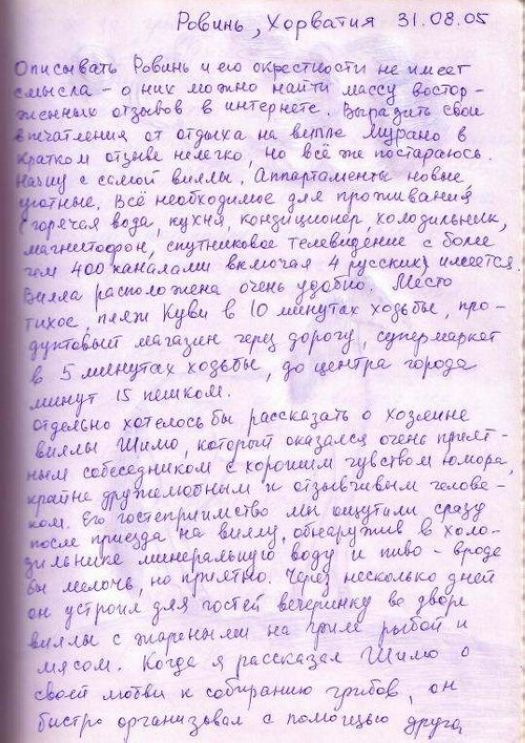 Ровинь, Хорватия 31.08.05
Описывать Ровинь и его окрестности не имеет
смысла - о них можно найти массу востор-
женных отзывов в интернете. Выразить свои
впечатления от отдыха на вилле Мурано в
кратком отзыве нелегко, но всё же постараюсь.
Начну с самой виллы. Аппартаменты новые
уютные. Всё необходимое для проживания
(горячая вода, кухня, кондиционер, холодильник,
магнитофон, спутниковое телевидение с более
чем 400 каналами включая 4 русских) имеется.
Вилла расположена очень удобно. Место
тихое, пляж Куви в 10 минутах ходьбы, про-
дуктовый магазин через дорогу, супермаркет
в 5 минутах ходьбы, до центра города
минут 15 пешком.
Отдельно хотелось бы рассказать о хозяине
виллы Шимо, который оказался очень прият-
ным собеседником с хорошим чувством юмора,
крайне дружелюбным и отзывчивым челове-
ком. Его гостеприимство мы ощутили сразу
после приезда на виллу, обнаружив в холо-
дильнике минеральную воду и пиво - вроде
бы мелочь, но приятно. Через несколько дней
он устроил для гостей вечеринку во дворе
виллы с жареными на гриле рыбой и
мясом. Когда я рассказал Шимо о
своей любви к собиранию грибов, он
быстро организовал с помощью друга,